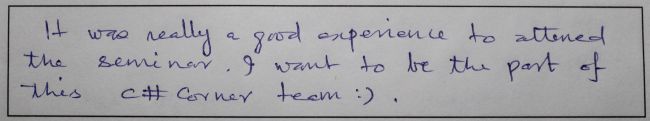 It was really a good experience to attened
the seminar. I want to be the part of
this c# Corner team :) .